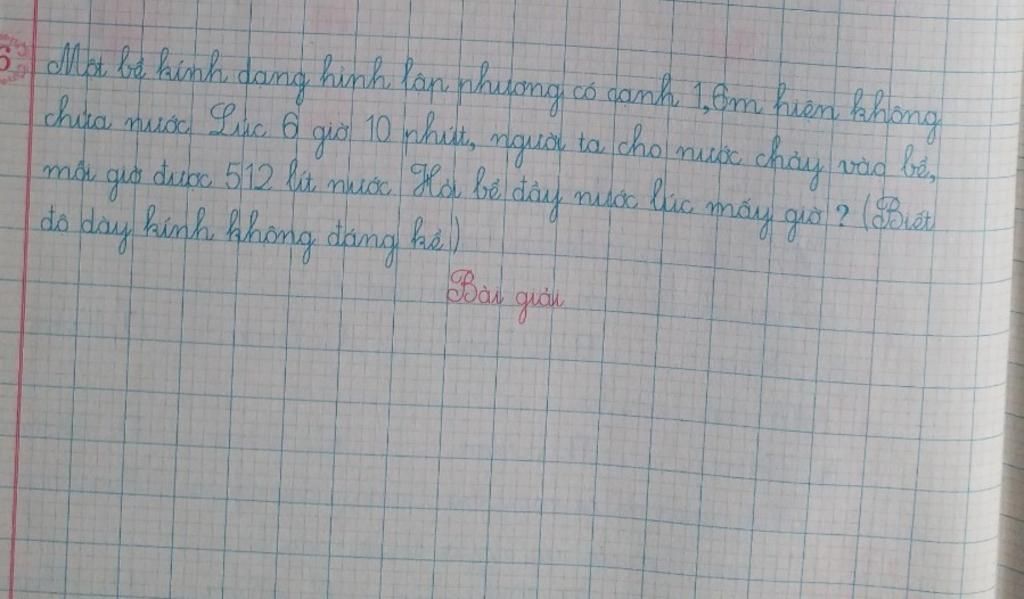 6
Một bể kính dạng hình lập phương có cạnh 1,6m hiện không
chứa nước. Lúc 6 giờ 10 phút, người ta cho nước chảy vào bể,
mỗi giờ được 512 lít nước. Hỏi bể đầy nước lúc mấy giờ? (Biết
độ dày kính không đáng kể)
Bài giải